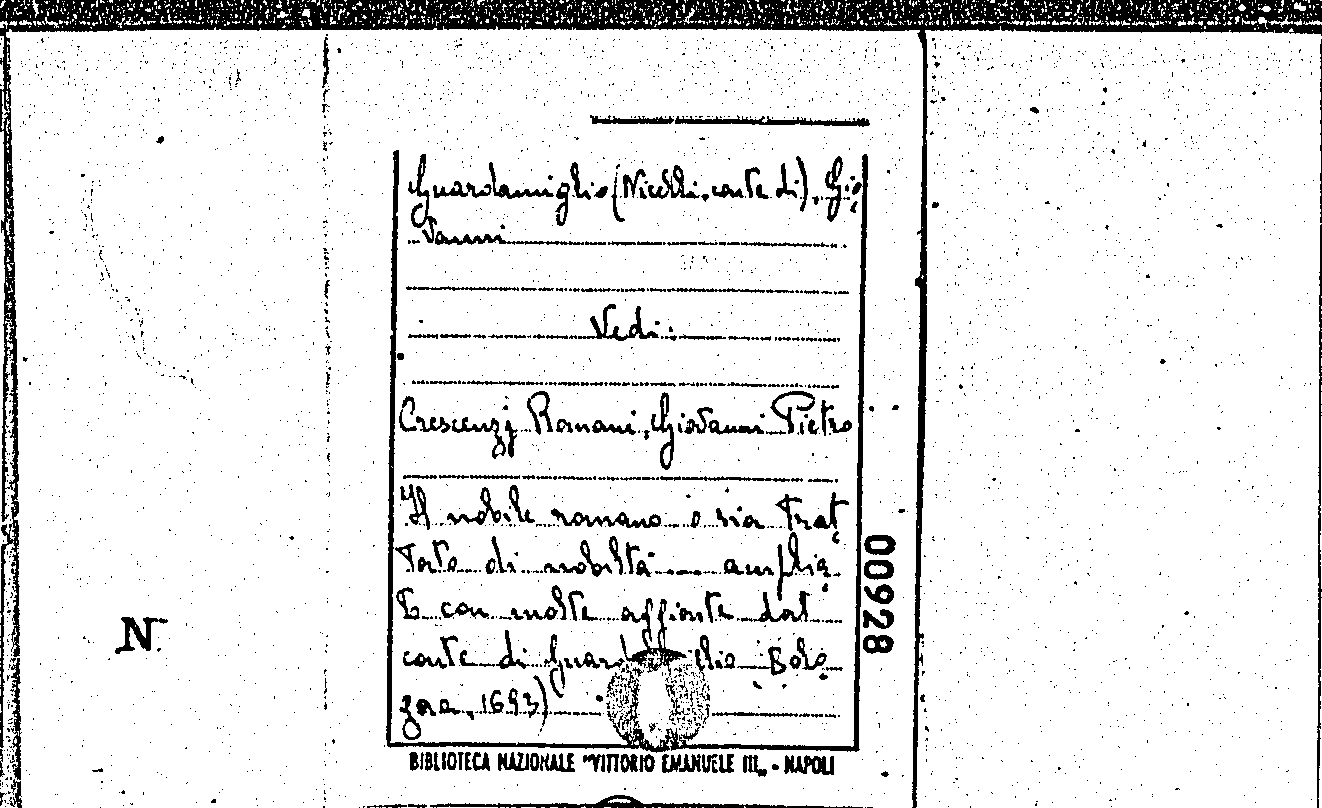 Guardamiglio (Nicelli, conte di), Gio
vanni
Vedi:
Crescenzj Romani, Giovanni Pietro
Il nobile romano o sia Trat
tato di nobiltà .... amplia
to con molte affionte dal
conte di Guard glio Bolo
gna, 1693)
N
00928
BIBLIOTECA NAZIONALE "VITTORIO EMANUELE III„ - NAPOLI